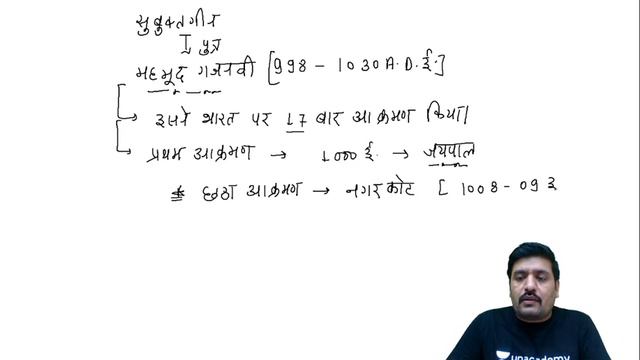 सुबुक्तगीन
पुत्र
महमूद गजनवी [998 - 1030 A.D. ई.]
→ इसने भारत पर 17 बार आक्रमण किया।
→ प्रथम आक्रमण → 1000 ई. → जयपाल
* छठा आक्रमण → नगर कोट [ 1008 - 09 ई
unacademy